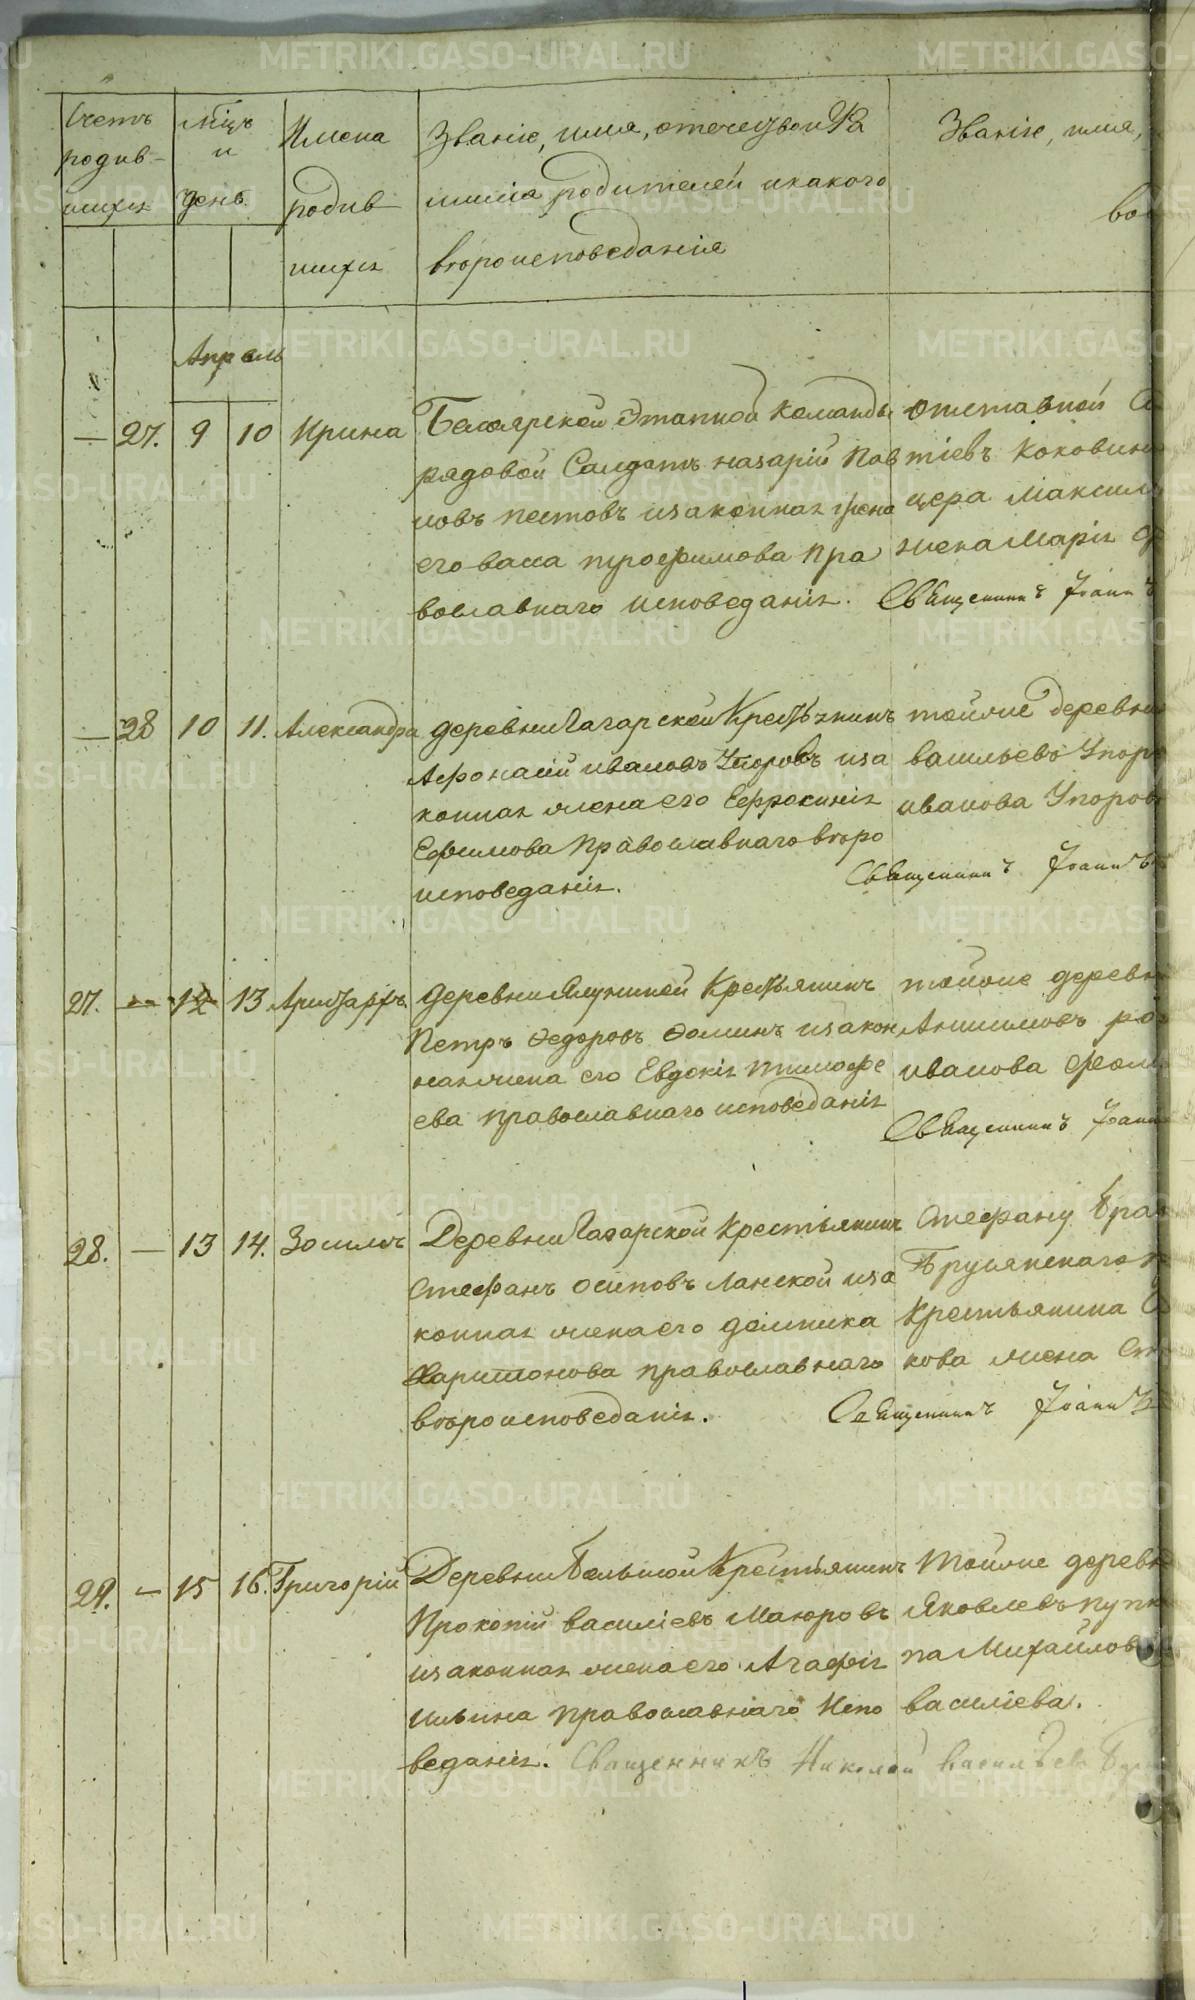 Счетъ родив- шихъ
Мѣцъ и день
Имена родив шихъ
Званіе, имя, отечество и Фа
милія родителей и какого
вѣроисповеданія
Званіе, имя,
Апрель
— 27. 9 10 Ирина
Белоярской Этапной Команды
рядовой Солдатъ назарій Пав
ловъ пестовъ изаконная жена
его васса трофимова Пра
вославнаго исповеданія.
отставной
тіевъ Коковин
цера Максим
жена Марія
Священникъ Іоаннъ
— 28 10 11. Александра
деревни Гагарской Крестьянинъ
Афонасій ивановъ Упоровъ иза
конная жена его Ефросинія
Ефимова Православнаго вѣро
исповеданія.
тойже деревни
васильевъ Упор
иванова Упоров
Священникъ Іоаннъ
27. — 12 13 Аристархъ
деревни Ялуниной Крестьянинъ
Петръ Федоровъ Фоминъ изакон
ная жена его Евдокія тимофе
ева православнаго исповеданія
тойже деревн
Анисимовъ
иванова Фом
Священникъ Іоанн
28. — 13 14. Зосима
Деревни Гагарской Крестьянинъ
Стефанъ осиповъ Ланской иза
конная жена его домника
Харитонова православнаго
вѣроисповеданія.
Стефану
Бруснянскаго
Крестьянина
кова жена
Священникъ Іоаннъ
29. — 15 16. Григорій
Деревни Большой Крестьянинъ
Прокопій василіевъ Маюровъ
изаконная жена его Агафія
ильина православнаго испо
веданія.
Тойже деревн
Яковлевъ пупк
па Михайлов
василіева.
Священникъ Николай Васильевъ
METRIKI.GASO-URAL.RU